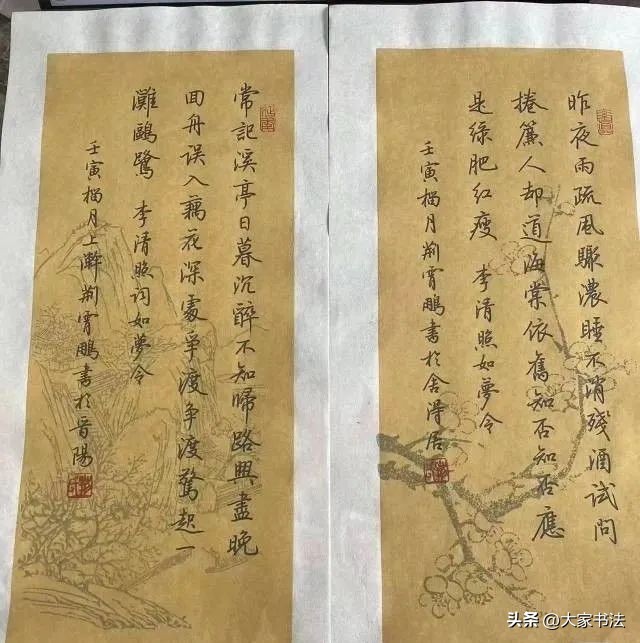 昨夜雨疏風驟濃睡不消殘酒試問
捲簾人却道海棠依舊知否知否應
是綠肥紅瘦 李清照如夢令
壬寅榴月荆霄鵬書於舍淂居
常記溪亭日暮沉醉不知歸路興盡晚
回舟误入藕花深處爭渡爭渡驚起一
灘鷗鷺 李清照词如夢令
壬寅榴月上澣荆霄鵬書於晉陽
头条 @大家书法